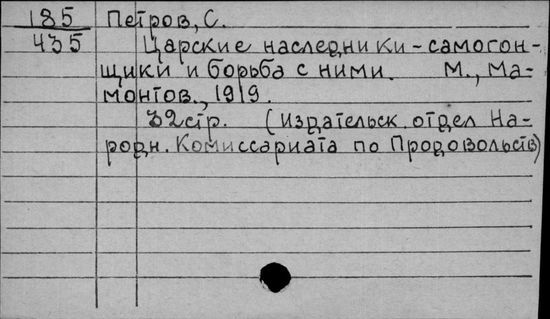 185 Петров, С.
435 Царские наследники-самогон-
щики и борьба с ними. М., Ма-
монтов., 1919.
32стр. (Издательск. отдел На-
родн. Комиссариата по Продовольств)